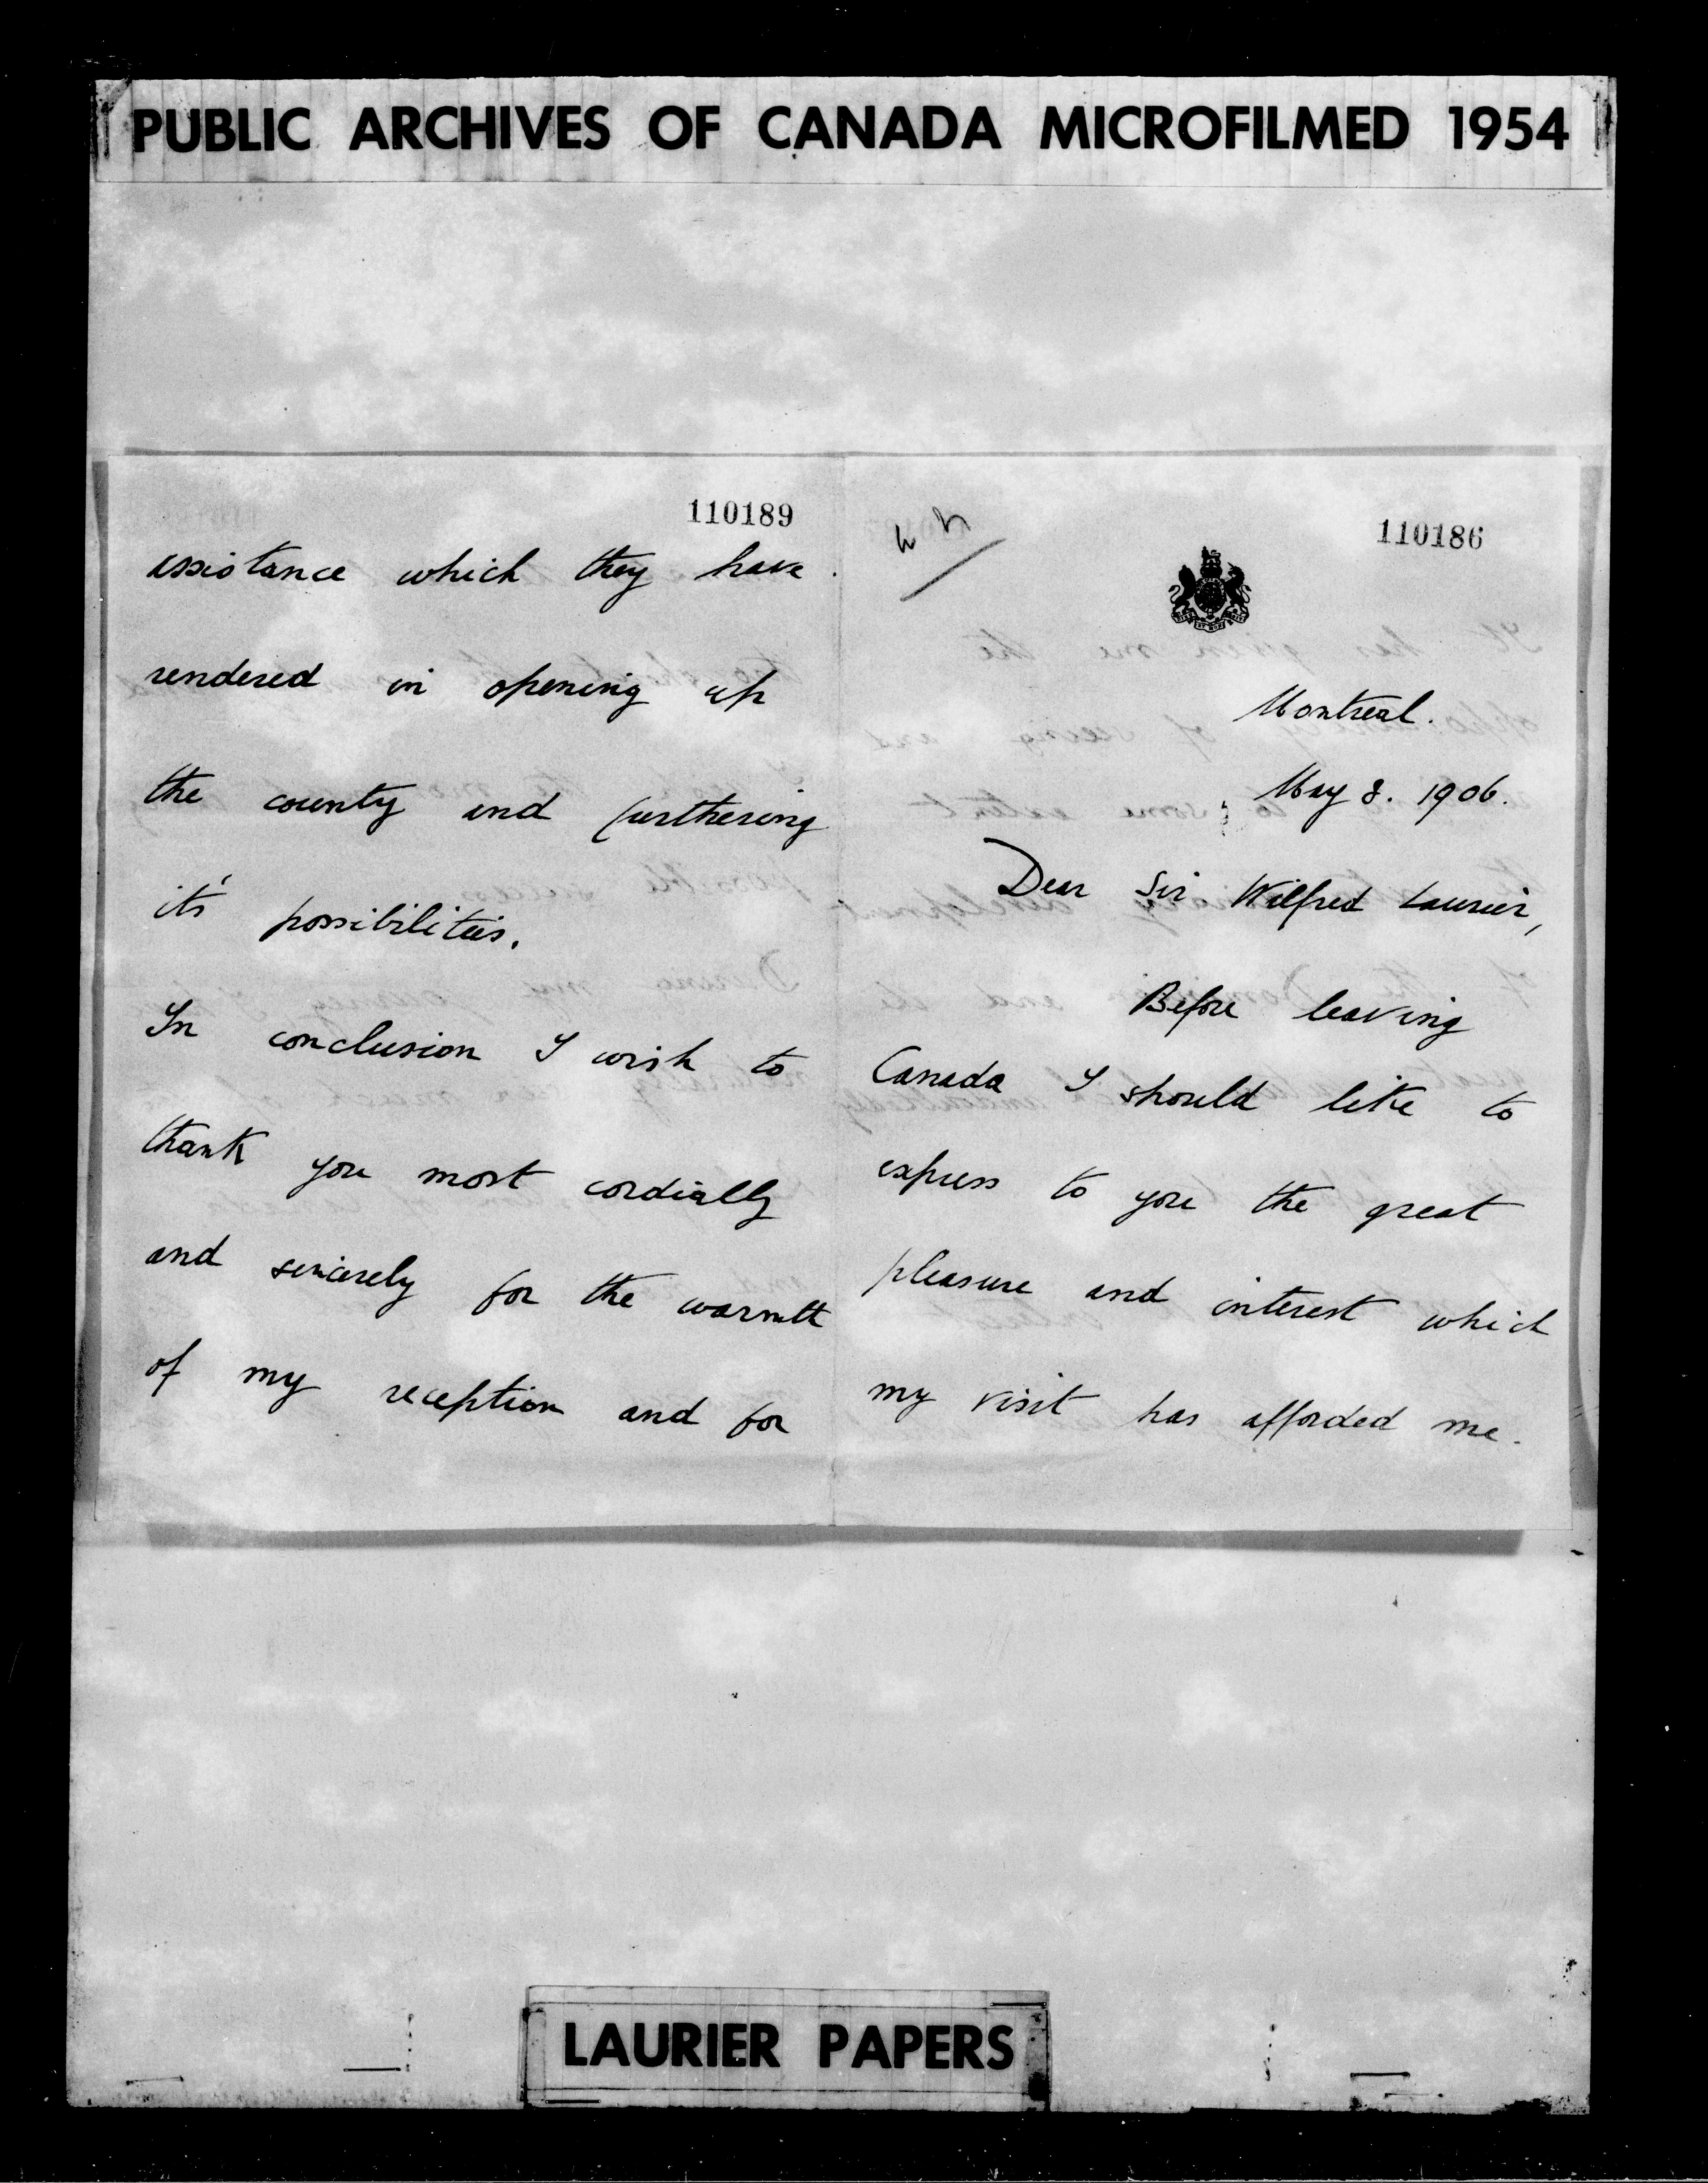 PUBLIC ARCHIVES OF CANADA MICROFILMED 1954
110189
assistance which they have
rendered in opening up
the county and furthering
it's possibilities.
In conclusion I wish to
thank you most cordially
and sincerely for the warmth
of my reception and for
110186
Montreal.
May 8. 1906.
Dear Sir Wilfred Laurier,
Before leaving
Canada I should like to
express to you the great
pleasure and interest which
my visit has afforded me.
LAURIER PAPERS